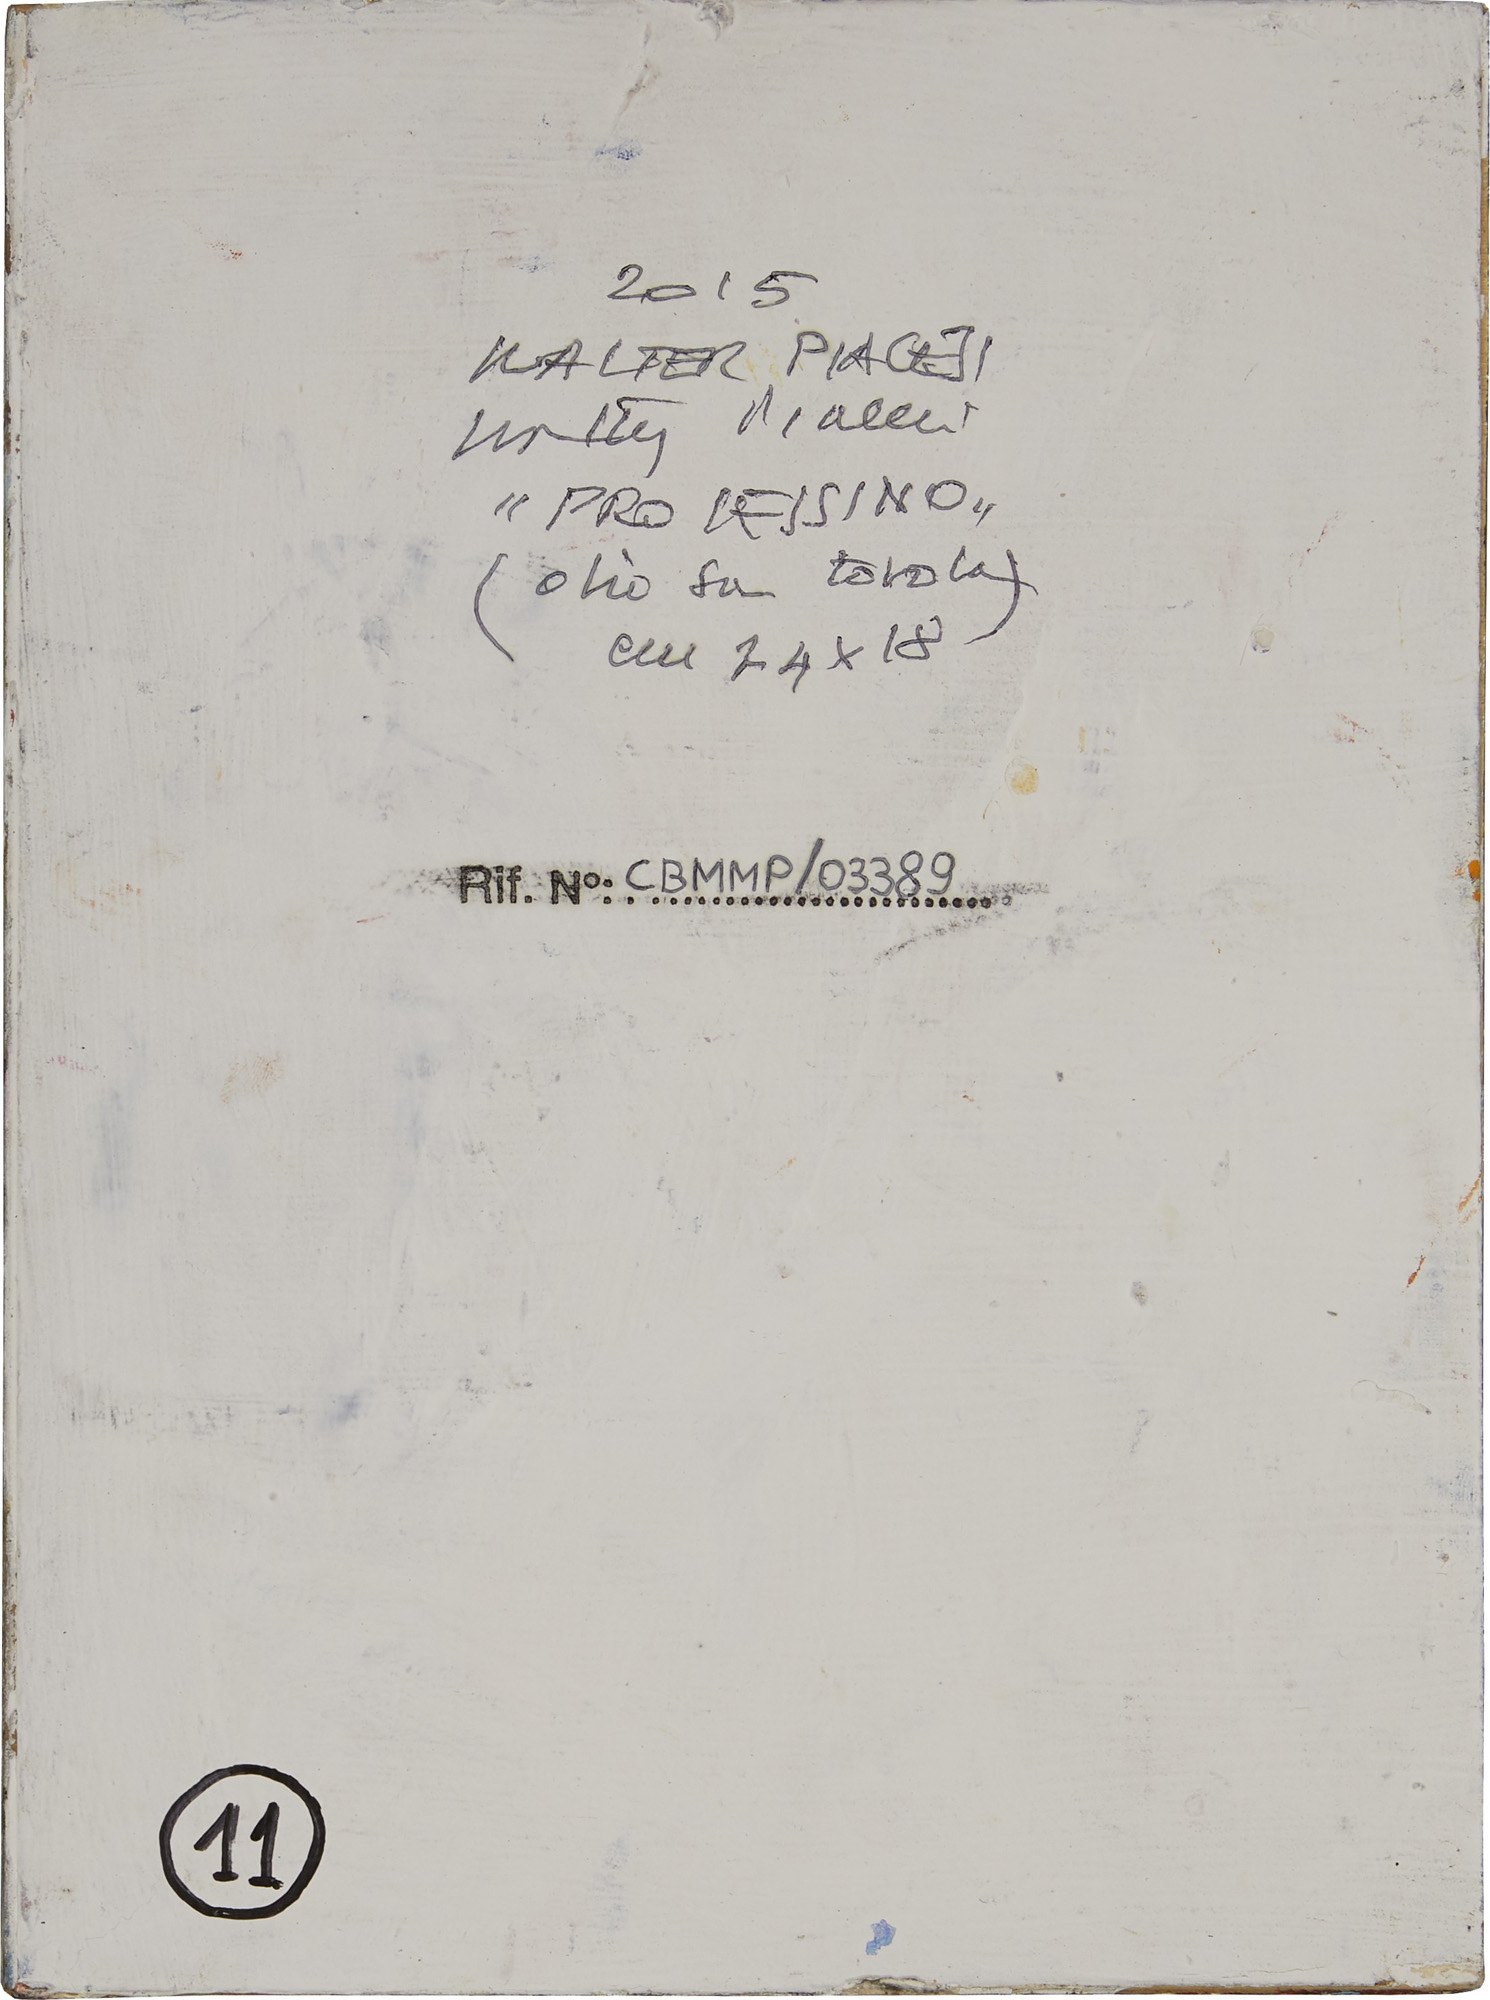 2015
WALTER PIACESI
Walter Piacesi
"PROFESSINO"
(olio su tavola)
cm 24x18
Rif. N°: CBMMP/03389
11